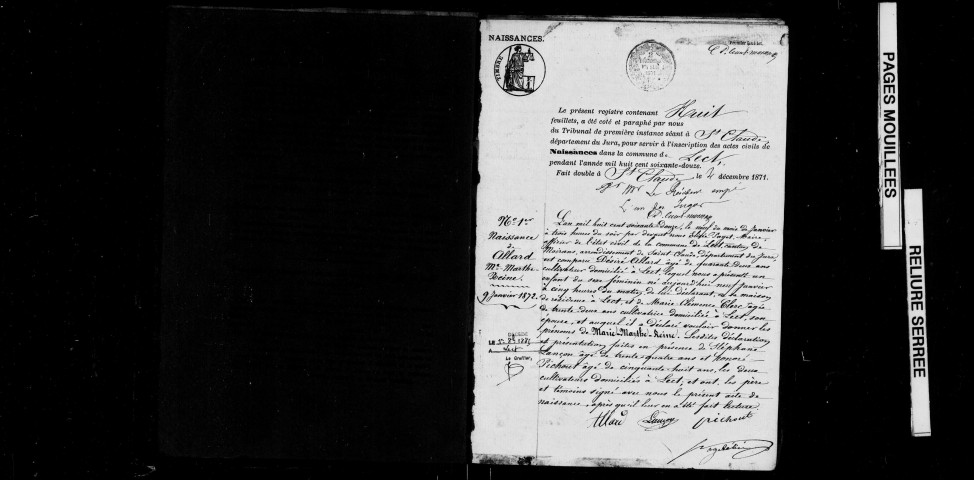 NAISSANCES.
TIMBRE
Le présent registre contenant Huit
feuillets, a été coté et paraphé par nous
du Tribunal de première instance séant à St Claude,
département du Jura, pour servir à l'inscription des actes civils de
Naissances dans la commune de Lect,
pendant l'année mil huit cent soixante-douze.
Fait double à St Claude, le 2 décembre 1871.
Le Président empé
L'un des Juges
No 1er
Naissance
de
Allard
Mie Marthe
Reine.
9 Janvier 1872.
Lect
Le Greffier,
L'an mil huit cent soixante douze, le neuf du mois de Janvier
à trois heures du soir par devant nous Paget, Maire,
officier de l'état civil de la commune de Lect, canton de
Moirans, arrondissement de Saint Claude, département du Jura,
est comparu Désiré Allard âgé de quarante deux ans
cultivateur domicilié à Lect lequel nous a présenté un
enfant du sexe féminin né aujourd'hui neuf Janvier
à cinq heures du matin, de lui déclarant, en sa maison
de résidence à Lect, et de Marie Clémence Clerc âgée
de trente deux ans cultivatrice domiciliée à Lect, son
épouse, et auquel il a déclaré vouloir donner les
prénoms de Marie-Marthe-Reine. Lesdites déclaration
et présentation faites en présence de Stéphane
Lançon âgé de trente-quatre ans et honoré
Pichout âgé de cinquante-huit ans, les deux
cultivateurs domiciliés à Lect, et ont les père
et témoins signé avec nous le présent acte de
naissance, après qu'il leur en a été fait lecture.
Allard Lançon pichout
PAGES MOUILLEES
RELIURE SERREE